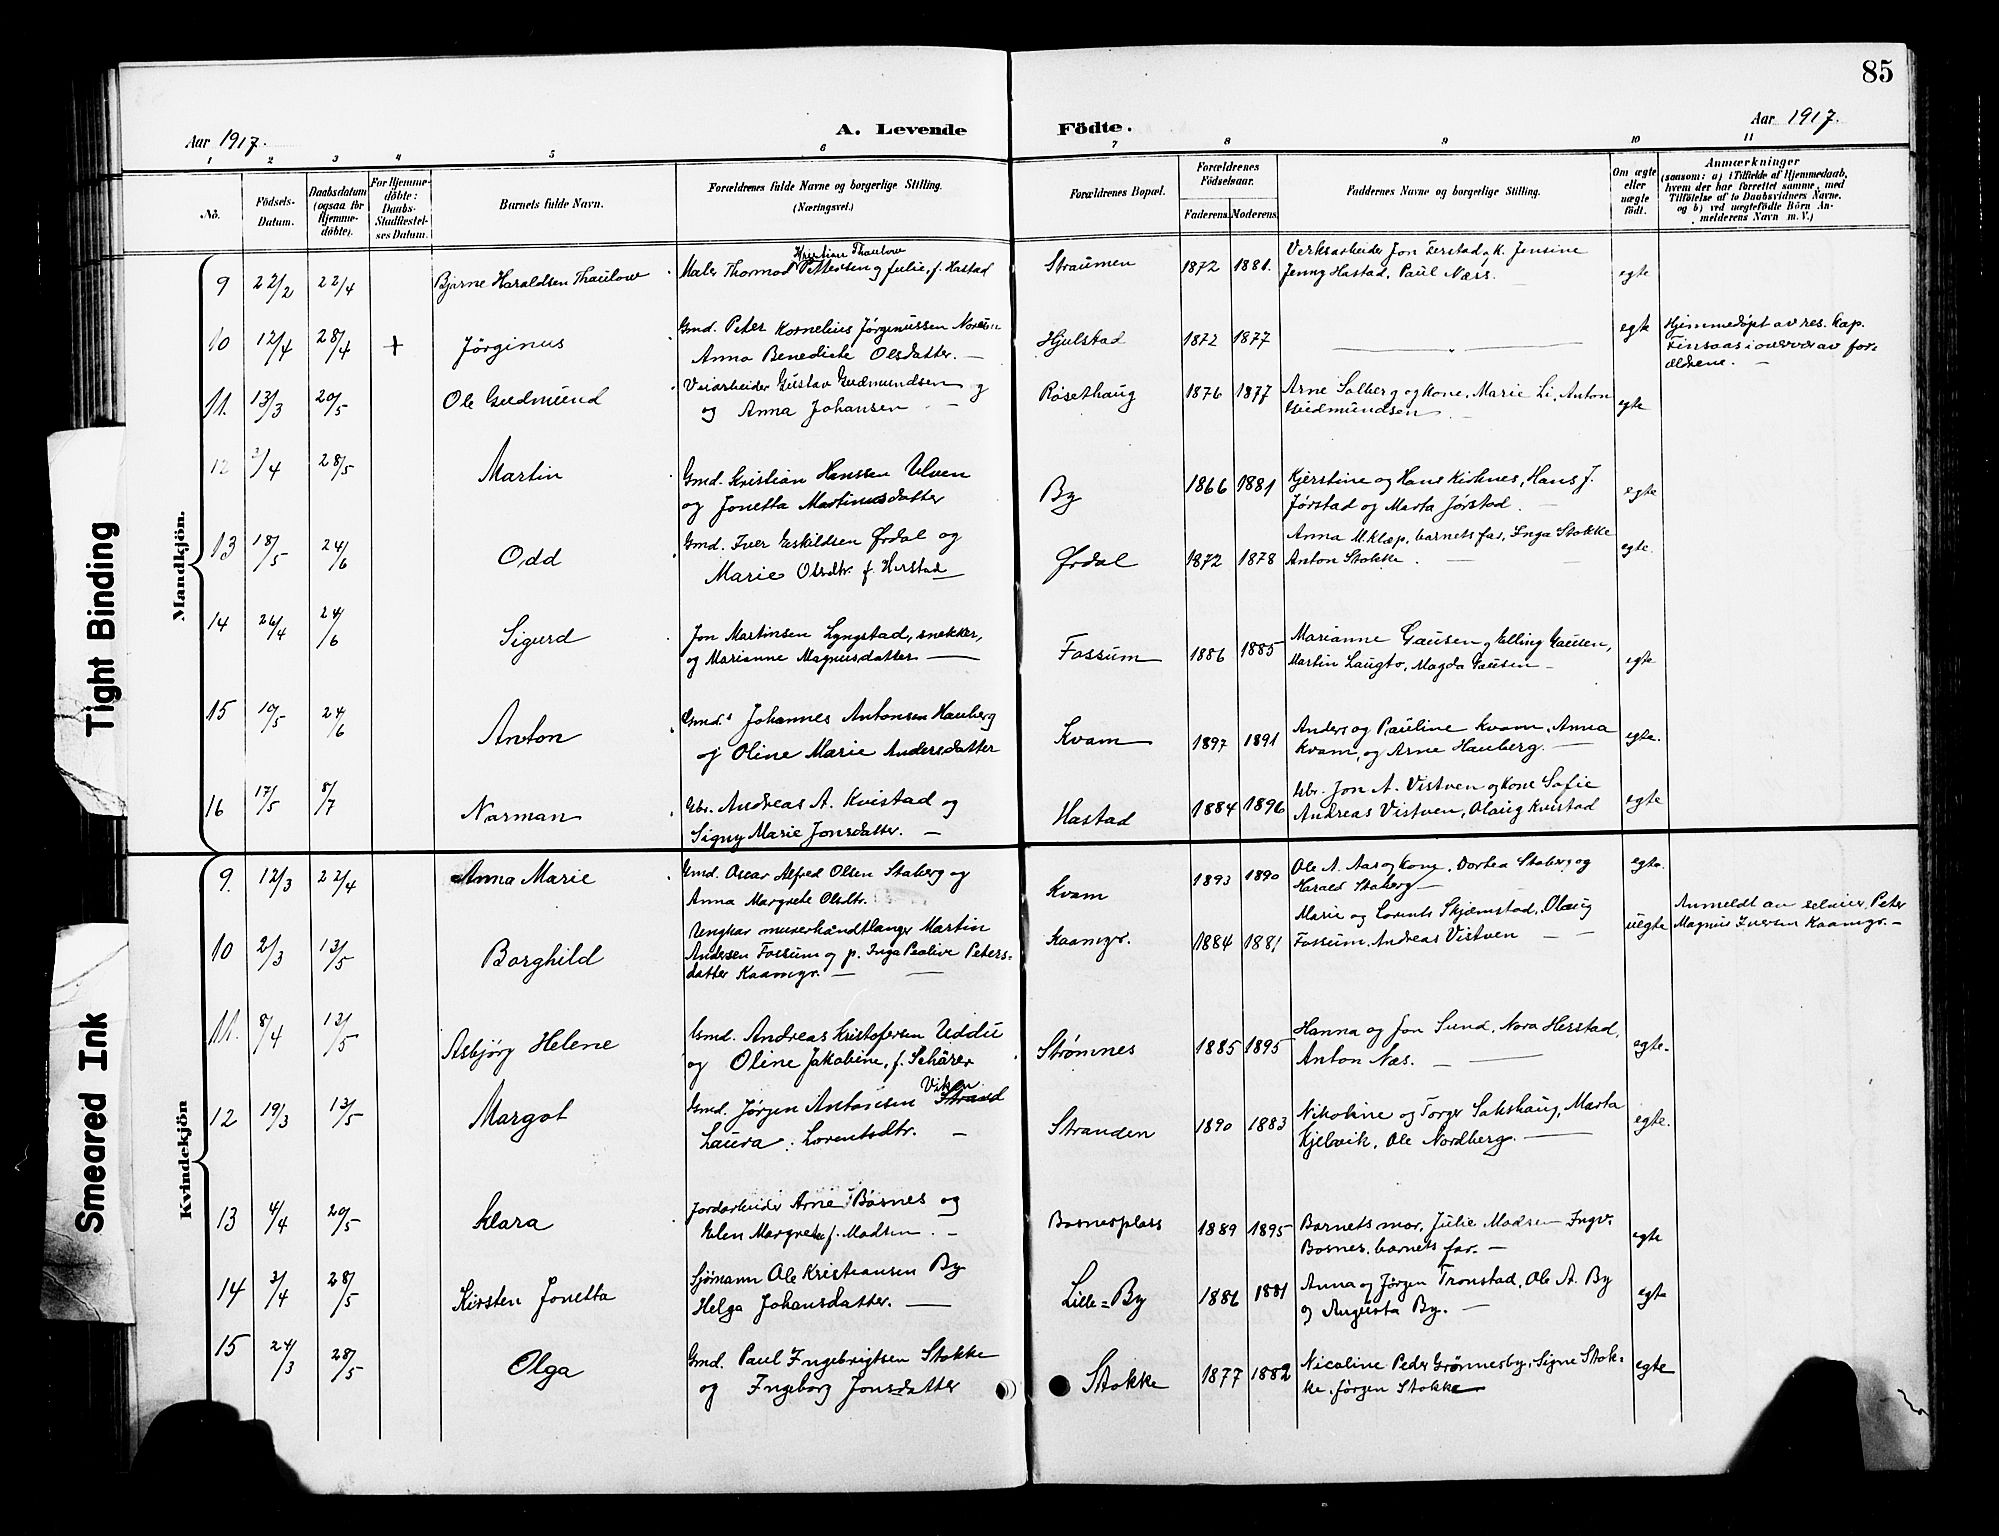 85
Aar 1917.
A. Levende Födte.
Aar 1917.
1 2 3 4 5 6 7 8 9 10 11
No.
Födsels-Datum.
Daabsdatum (ogsaa for Hjemme-döbte).
For Hjemme-döbte: Daabs-Stadfæstel-ses Datum.
Barnets fulde Navn.
Forældrenes fulde Navne og borgerlige Stilling.
(Næringsvei.)
Forældrenes Bopæl.
Forældrenes Födselsaar.
Faderens. Moderens.
Faddernes Navne og borgerlige Stilling.
Om ægte eller uægte födt.
Anmærkninger
(saasom: a) i Tilfælde af Hjemmedaab,
hvem der har forrettet samme, med
Tilföielse af to Daabsvidners Navne,
og b) ved uægtefödte Börn An-
melderens Navn m. V.)
Mandkjön.
Kristian Thaulow
9 22/2 22/4 Bjarne Haraldsen Thaulow Maler Thormod Pettersen og Julie, f. Hastad Straumen 1872 1881. Verksarbeider Jon Ferstad, k. Jensine
Jenny Hastad, Paul Næss. egte
10 12/4 28/4 + Jörginus Gmd. Peter Kornelius Jørginussen
Anna Benedicte Olsdatter. — Hjulstad 1872 1877 — " — egte Hjemmedøpt av res. kap.
Finsaas i overvær av for-
ældrene. —
11. 13/3 20/5 Ole Gudmund Veiarbeider Gustav Gudmundsen
og Anna Johansen — Røsethaug 1876 1877 Arne Salberg og kone, Marie Li, Anton
Gudmundsen egte
12 /4 28/5 Martin Gmd. Kristian Hanssen Ulven
og Jonetta Martinusdatter By 1866 1881 Kjerstine og Hans Kirknes, Hans J.
Jørstad og Marta Jørstad egte
13 18/5 24/6 Odd Gmd. Iver Eskildsen Ørdal og
Marie Olsdtr. f. Herstad Ørdal 1872 1878 Anna M. Klæp, barnets far, Inga Stokke
Anton Stokke. egte.
14 26/4 24/6 Sigurd Jon Martinsen Lyngstad, snekker,
og Marianne Magnusdatter — Fossum 1886 1885 Marianne Gausen og Elling Gausen,
Martin Laugto, Magda Gausen — egte
15 10/5 24/6 Anton Gmd. Johannes Antonsen Hauberg
og Oline Marie Andersdatter Kvam 1897 1891 Anders og Pauline Kvam, Anna
Kvam, og Arne Hauberg. — egte.
16 17/5 8/7 Norman Gbr. Andreas A. Kvistad og
Signy Marie Jonsdatter. — Hastad 1884 1896 Gbr. Jon A. Vistven og kone Sofie
Andreas Vistven, Olaug Kvistad egte
Kvindekjön
9. 12/3 22/4 Anna Marie Gmd. Oscar Alfred Olsen Staberg og
Anna Margrete Olsdtr. Kvam 1893 1890 Ole A. Aas og kone, Dortea Staberg og
Harald Staberg — egte.
10 2/3 13/5 Borghild Ungkar murerhåndtlanger Martin
Andersen Fossum og p. Inga Paoline Peters-
datter Kaamgr. — Kaamgr. 1884 1881 Marie og Lorents Skjæmstad, Olaug
Fossum, Andreas Vistven — uegte Anmeldt av selveier Peter
Magnus Iversen Kaamgr. —
11. 8/4 13/5 Asbjörg Helene Gmd. Andreas Kristofersen Uddu
og Oline Jakobine, f. Schårer Strømnes 1885 1895 Hanna og Jon Sund, Nora Herstad,
Anton Næs. — egte.
12 19/3 13/5 Margot Gmd. Jørgen Antonsen Strand Viken
Laura Lorentsdtr. — Stranden 1890 1883 Nikoline og Torger Sakshaug, Marta
Kjelvik, Ole Nordberg. — egte.
13 4/4 20/5 Klara Jordarbeider Arne Bosnes og
Elen Margrete f. Madsen. — Bosnesplass 1889 1895 Barnets mor, Julie Madsen Ingv.
Bosnes, barnets far. — egte
14 3/4 28/5 Kirsten Jonetta Sjømann Ole Kristiansen By
Helga Johansdatter. — Lille=By 1886 1881 Anna og Jørgen Tronstad, Ole A. By
og Augusta By. — egte
15 24/3 28/5 Olga Gmd. Paul Ingebrigtsen Stokke
og Ingeborg Jonsdatter Stokke 1877 1882 Nicoline Peder Grønnesby, Signe Stok-
ke, Jørgen Stokke egte
Tight Binding
Smeared Ink